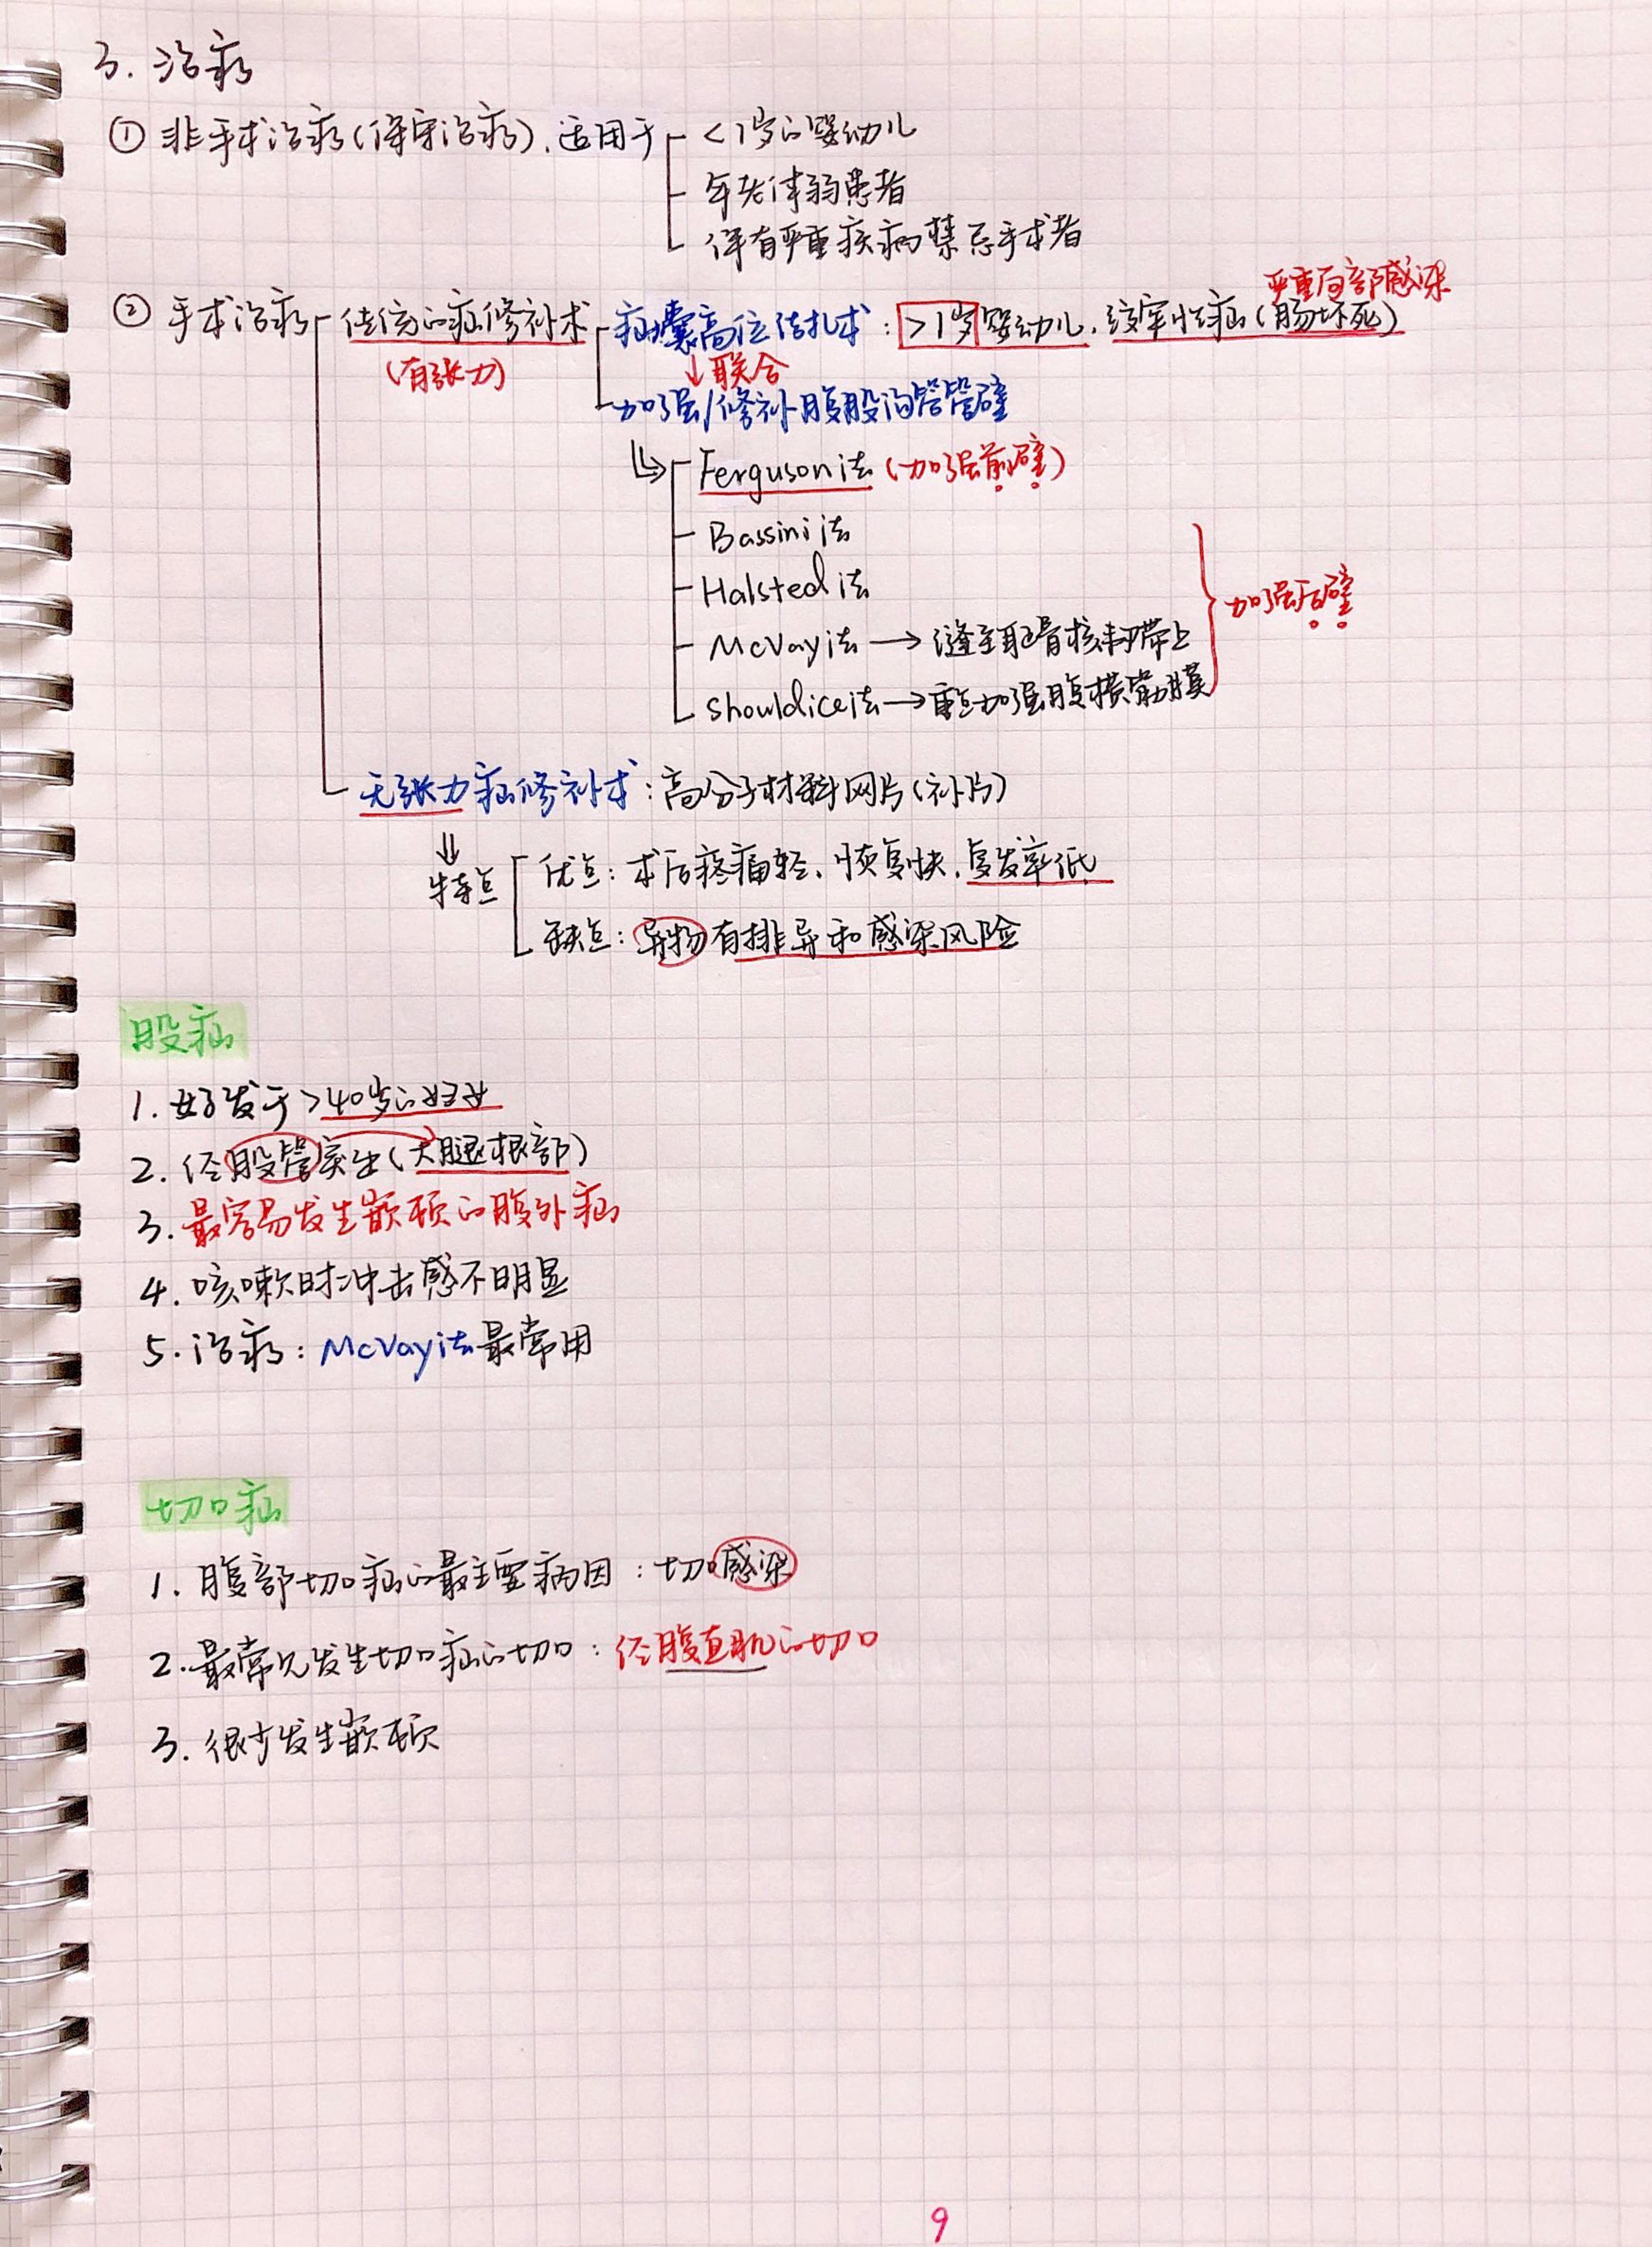 3. 治疗
① 非手术治疗(保守治疗). 适用于 <1岁的婴幼儿
年老体弱患者
伴有严重疾病禁忌手术者
严重局部感染
② 手术治疗 传统的疝修补术 疝囊高位结扎术: >1岁婴幼儿. 绞窄性疝(肠坏死)
(有张力) ↓联合
加强/修补腹股沟管管壁
Ferguson法 (加强前壁)
Bassini法
Halsted法
加强后壁
McVay法 → 缝至耻骨梳韧带上
Shouldice法 → 重点加强腹横筋膜
无张力疝修补术: 高分子材料网片(补片)
⇓
特点 优点: 术后疼痛轻、恢复快. 复发率低
缺点: 异物有排异和感染风险
股疝
1. 好发于>40岁的妇女
2. 经股管突出(大腿根部)
3. 最容易发生嵌顿的腹外疝
4. 咳嗽时冲击感不明显
5. 治疗: McVay法最常用
切口疝
1. 腹部切口疝的最主要病因: 切口感染
2. 最常见发生切口疝的切口: 经腹直肌的切口
3. 很少发生嵌顿
9